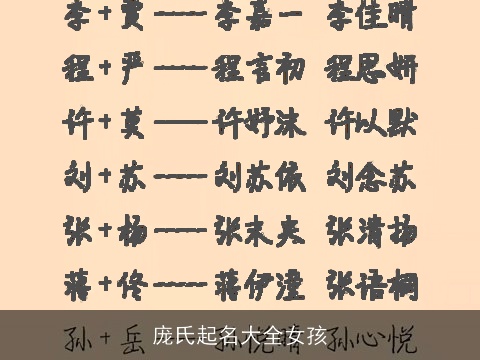 李+贾——李嘉一 李佳晴
程+严——程言初 程思妍
许+莫——许妤沫 许以默
刘+苏——刘苏依 刘念苏
张+杨——张末夹 张清扬
蒋+佟——蒋伊潼 张语桐
孙+岳——孙悦晴 孙心悦
庞氏起名大全女孩